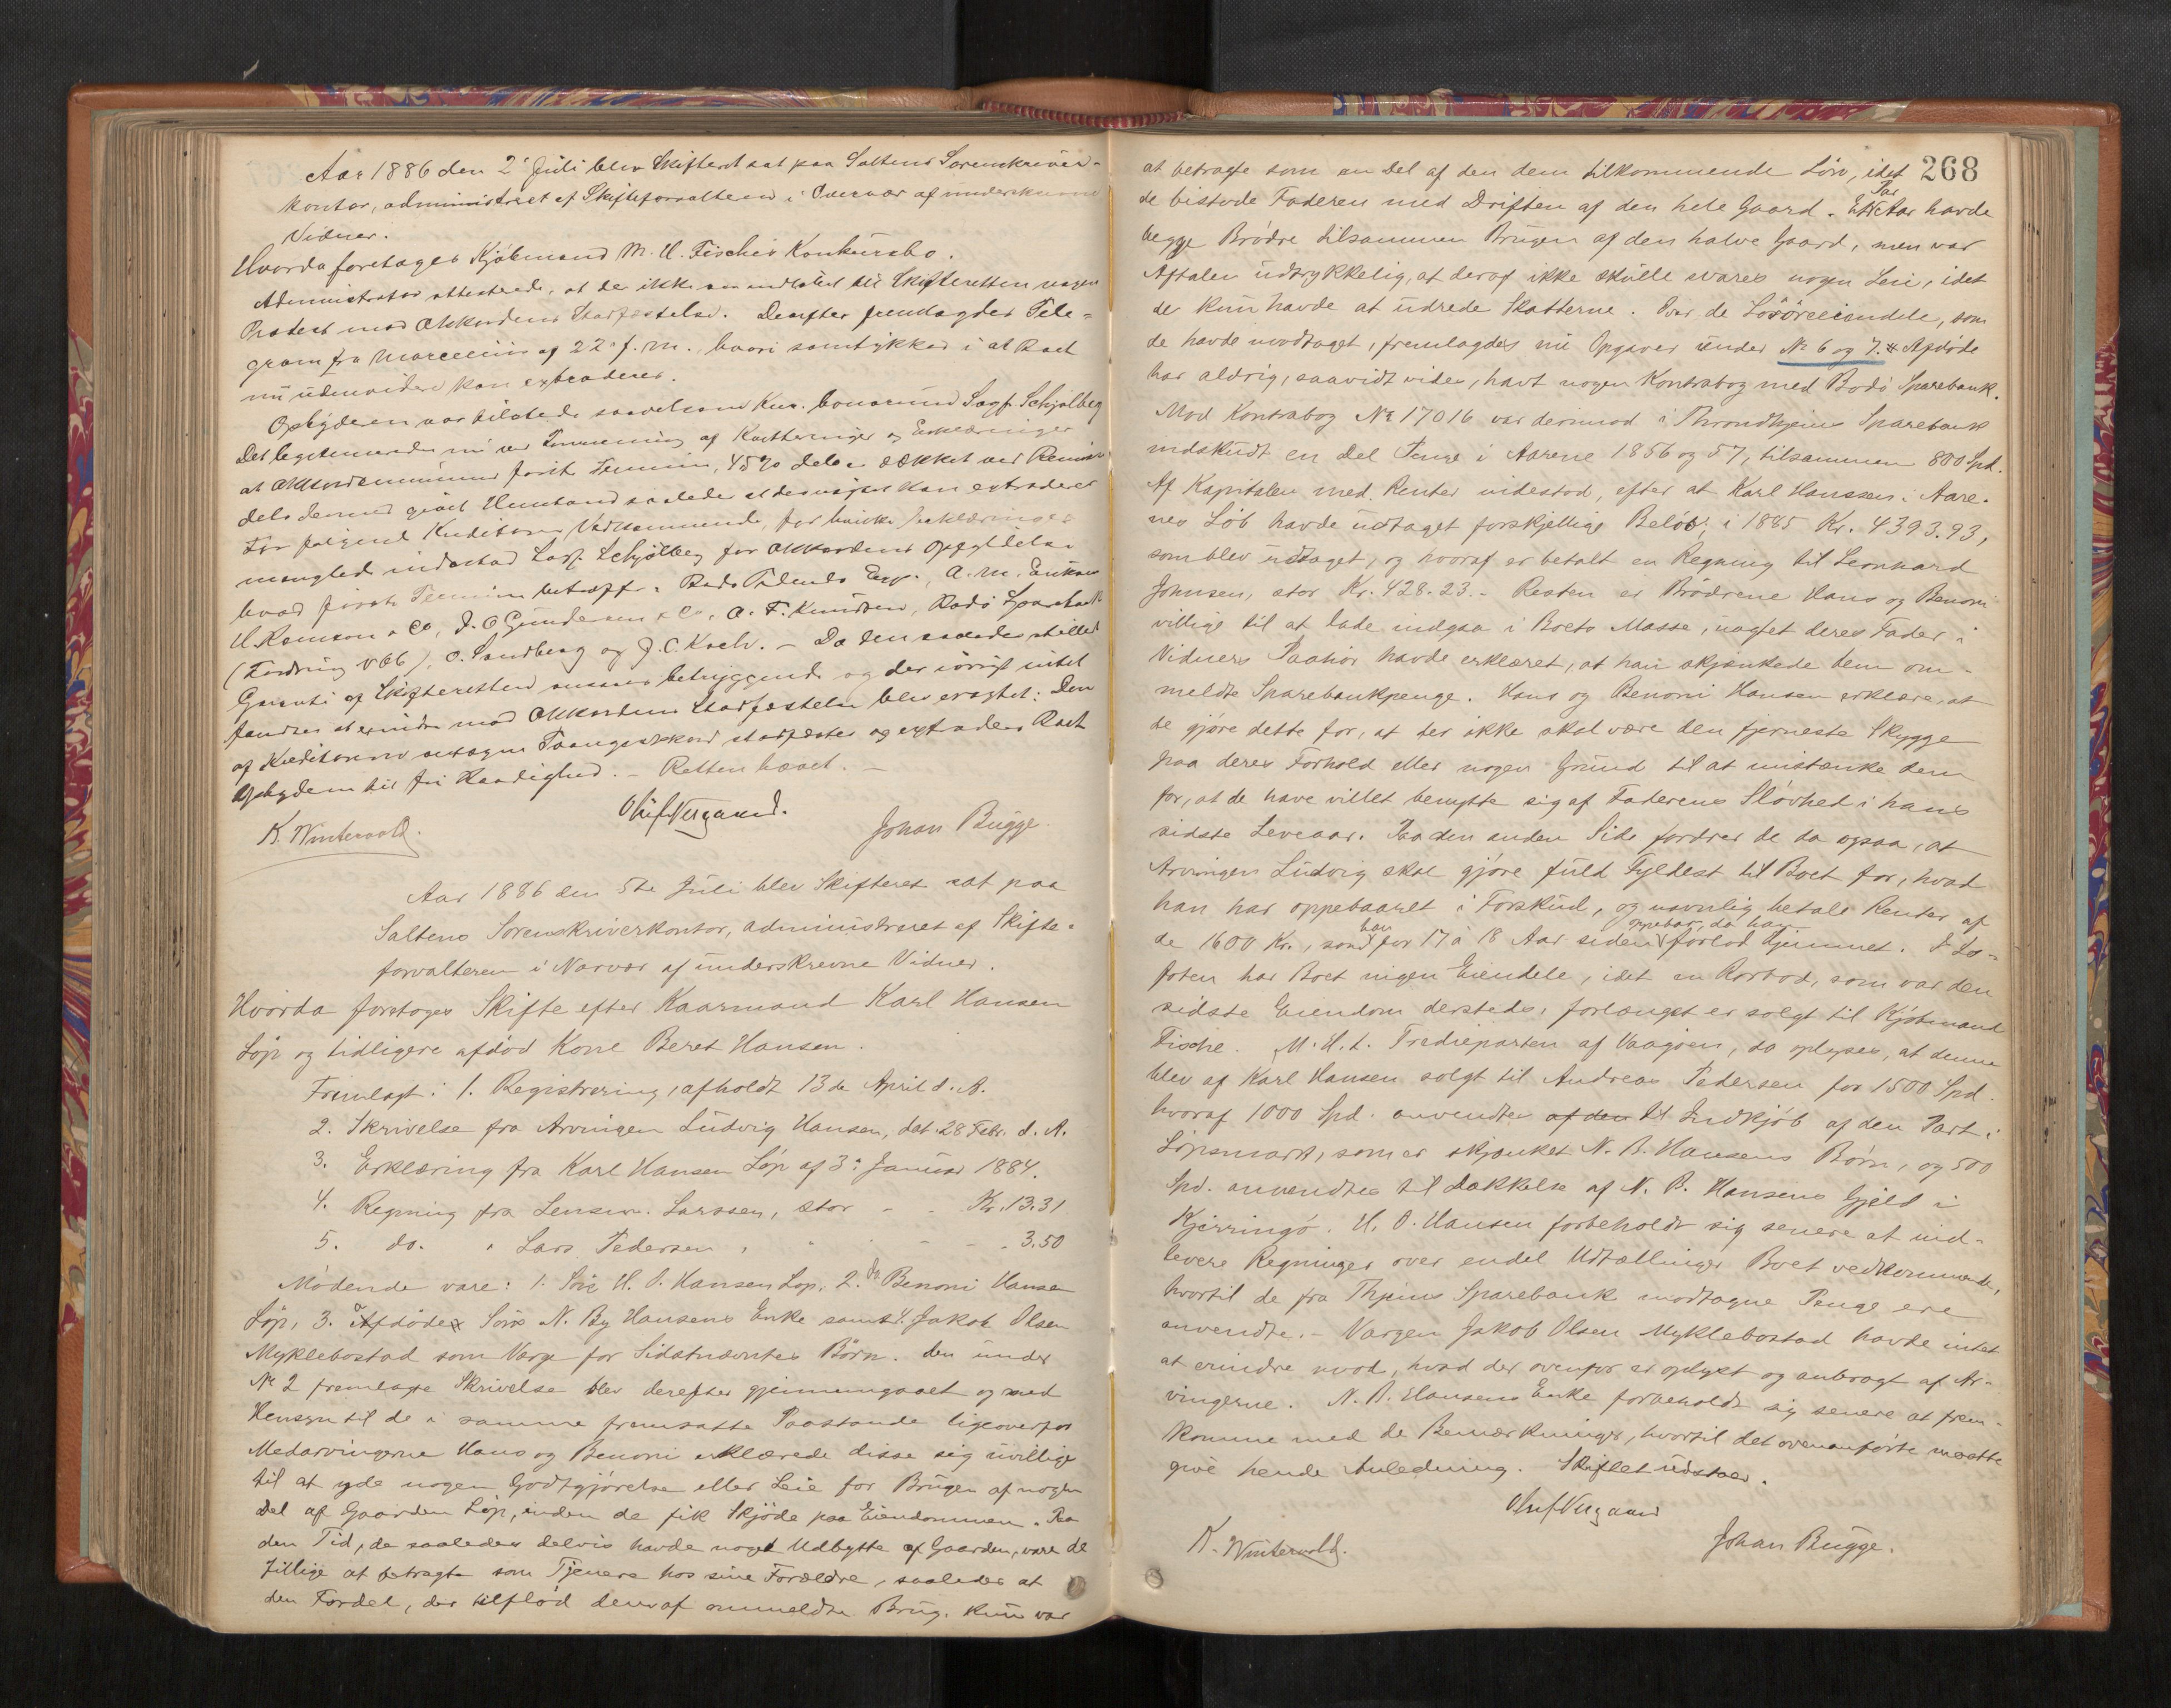 Aar 1886 den 2' Juli blev Skifteret sat paa Saltens Sorenskriver-
kontor, administreret af Skifteforvalteren i Overvær af underskrevne
Vidner.
Hvorda foretages Kjøbmand M. U. Fisches Konkursbo.
Administrator attesterede, at der ikke var indløbet til Skifteretten nogen
Protest mod Akkordens Stadfæstelse. Derefter fremlagdes Tele-
gram fra af 22' f. M. hvori samtykkes i at Boet
nu udenvidere kan extraderes.
Opbyderen var tilstede saavelsom Kur. bonorum Sagf. Schjølberg
Det legitimeredes nu ved af Kvitteringer og Erklæringer
at Akkordsummens første Termin, 45% dels er dækket ved
dels dermed givet Henstand saaledes at Boet kan extraderes
For følgende Kreditorers Vedkommende, for hvilke Erklæringer
manglede indestod Sagf. Schjølberg for Akkordens Opfyldelse
hvad første Termin betræffer: Bodø Exp., A. M. Eriksen
U. Ramson & Co, J. O Gundersen & Co, O. F. Knudsen, Bodø Sparebank
(Fordring V 66), O. Sandberg og J. C. Koch. - Da den saaledes stillede
Garanti af Skifteretten ansaaes betryggende og der iøvrigt intet
fandtes at erindre mod Akkordens Stadfæstelse blev eragtet: Den
af Kreditorerne antagne Tvangsakkord stadfæstes og extraderes Boet
Opbyderen til fri Raadighed. - Retten hævet. -
Oluf Vergaard.
K. Wintervold.
Johan Bugge.
Aar 1886 den 5te Juli blev Skifteret sat paa
Saltens Sorenskriverkontor, administreret af Skifte-
forvalteren i Nærvær af underskrevne Vidner.
Hvorda foretoges Skifte efter Kaarmand Karl Hansen
Løp og tidligere afdød Kone Beret Hansen.
Fremlagt: 1. Registrering, afholdt 13de April d. A.
2. Skrivelse fra Arvingen Ludvig Hansen, dat. 28 Febr. d. A.
3. Erklæring fra Karl Hansen Løp af 3' Januar 1884.
4. Regning fra Lensm. Larssen, stor - - Kr. 13.31
5. do. " Lars Pedersen, " - - - 3.50
Mødende vare: 1. Søn H. P. Hansen Løp, 2. do Benoni Hansen
Løp, 3. Afdøde Søns N. By Hansens Enke samt 4. Jakob Olsen
Myklebostad som Værge for Sidstnævntes Børn. Den under
No 2 fremlagte Skrivelse blev derefter gjennemgaaet og med
Hensyn til de i samme fremsatte Paastande ligeoverfor
Medarvingerne Hans og Benoni erklærede disse sig uvillige
til at yde nogen Godtgjørelse eller Leie for Brugen af nogen
Del af Gaarden Løp, inden de fik Skjøde paa Eiendommen. Paa
den Tid, de saaledes delvis havde noget Udbytte af Gaarden, vare de
tillige at betragte som Tjenere hos sine Forældre, saaledes at
den Fordel, der tilflød dem af ommeldte Brug, kun var
268
at betragte som en Del af den dem tilkommende Løn, idet
de bistode Faderen med Driften af den hele Gaard. Et Par Aar havde
begge Brødre tilsammen Brugen af den halve Gaard, men var
Aftalen udtrykkelig, at deraf ikke skulle svares nogen Leie, idet
de kun havde at udrede Skatterne. Over de Løsøreeiendele, som
de havde modtaget, fremlagdes nu Opgaver under No 6 og 7. Afdøde
har aldrig, saavidt vides, havt nogen Kontrabog med Bodø Sparebank.
Mod Kontrabog No 17016 var derimod i Throndhjems Sparebank
indskudt en Del Penge i Aarene 1856 og 57, tilsammen 800 Spd.
Af Kapitalen med Renter indestod, efter at Karl Hanssen i Aare-
nes Løb havde udtaget forskjellige Beløb, i 1885 Kr. 4393.93,
som blev udtaget, og hvoraf er betalt en Regning til Leonhard
Johnsen, stor Kr. 428.23. - Resten er Brødrene Hans og Benoni
villige til at lade indgaa i Boets Masse, uagtet deres Fader i
Vidners Paahør havde erklæret, at han skjænkede dem om-
meldte Sparebankpenge. Hans og Benoni Hansen erklære, at
de gjøre dette for, at der ikke skal være den fjerneste Skygge
paa deres Forhold eller nogen Grund til at mistænke dem
for, at de have villet benytte sig af Faderens Sløvhed i hans
sidste Leveaar. Paa den anden Side fordrer de da ogsaa, at
Arvingen Ludvig skal gjøre fuld Fyldest til Boet for, hvad
han har oppebaaret i Forskud, og navnlig betale Renter af
de 1600 Kr., som han for 17 à 18 Aar siden oppebar, da han forlod Hjemmet. I Lo-
foten har Boet ingen Eiendele, idet en Rorbod, som var den
sidste Eiendom dersteds, forlængst er solgt til Kjøbmand
Fische. M. H. t. Trediparten af Vaagøen, da oplyses, at denne
blev af Karl Hansen solgt til Andreas Pedersen for 1500 Spd.
hvoraf 1000 Spd. anvendtes af den til Indkjøb af den Part i
Løpsmark, som er skjænket N. B. Hansens Børn, og 500
Spd. anvendtes til Dækkelse af N. B. Hansens Gjæld i
Kjerringø. H. P. Hansen forbeholdt sig senere at ind-
levere Regninger over endel Udtællinger Boet vedkommende,
hvortil de fra Thjems Sparebank modtagne Penge ere
anvendte. - Værgen Jakob Olsen Myklebostad havde intet
at erindre mod, hvad der ovenfor er oplyst og anbragt af Ar-
vingerne. N. B. Hansens Enke forbeholdt sig senere at frem-
komme med de Bemærkninger, hvortil det ovenanførte maatte
give hende Anledning. Skiftet udstaaer.
Oluf Vergaard
K. Wintervold.
Johan Bugge.